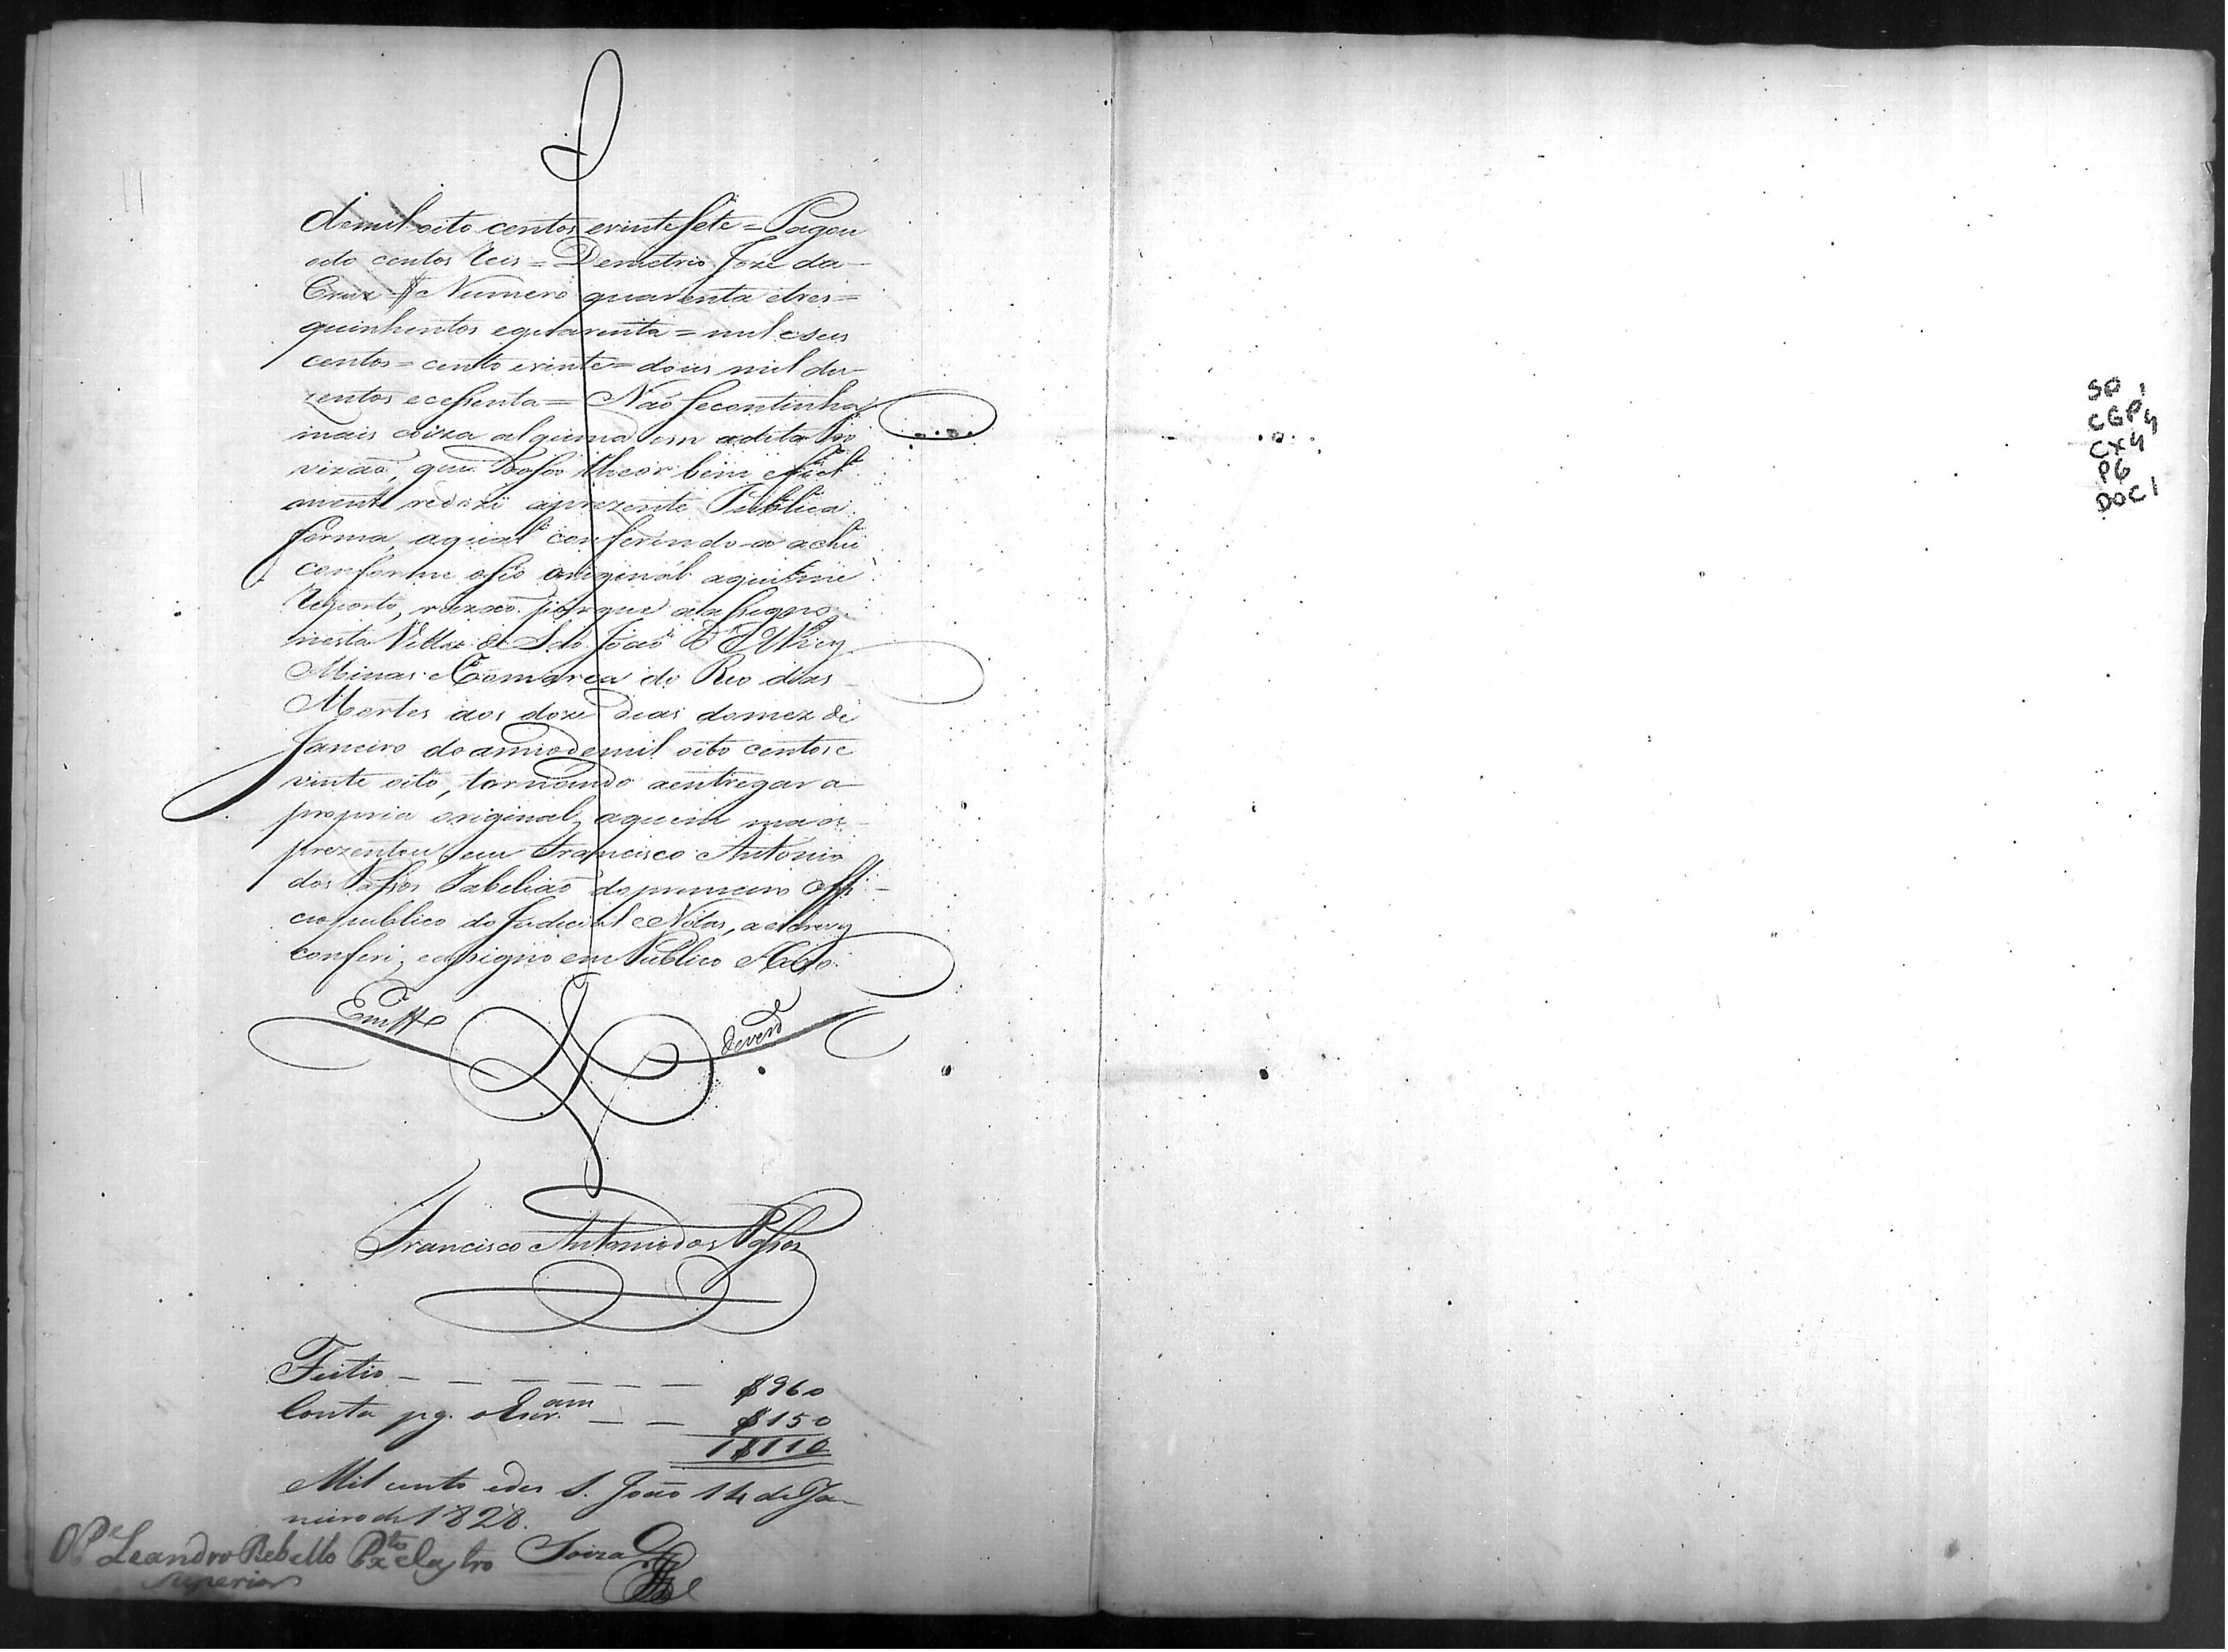 de mil oito centos e vinte sete = Pagou
oito centos reis = Demetrio Jozé da
Cruz = Numero quarenta e tres =
quinhentos e quarenta = mil e seis
centos = cento e vinte = dous mil du-
zentos e cessenta = Naõ se continha
mais coiza alguma em a dita Pro
vizaõ, que do seo theor bem e fiel
mente redizi a prezente Publica
forma, a qual conferindo-a achei
conforme o seo original a qui me
reporto, razaõ porque a assigno
nesta Villa de Saõ Joaõ D'El Rey
Minas e Comarca do Rio das
Mortes aos doze dias do mez de
Janeiro do anno de mil oito centos e
vinte oito, tornando a entregar a
propria original, a quem ma a-
prezentou, eu Francisco Antonio
dos Passos Tabeliaõ do primeiro Offi-
cio publico do Judicial e Notas, a escrevy
conferi, e assigno em Publico e Razo.
Em tt.º de verd.e
Francisco Antonio dos Passos
Feitio - - - - - - $960
Conta pg. o Enr. am - - $150
1$110
Mil cento e des S. João 14 de Ja-
neiro de 1828.
Soiza
O P.e Leandro Rebello Px.to e Castro
Superior
SP 1
CGP4
CX4
P6
DOC1